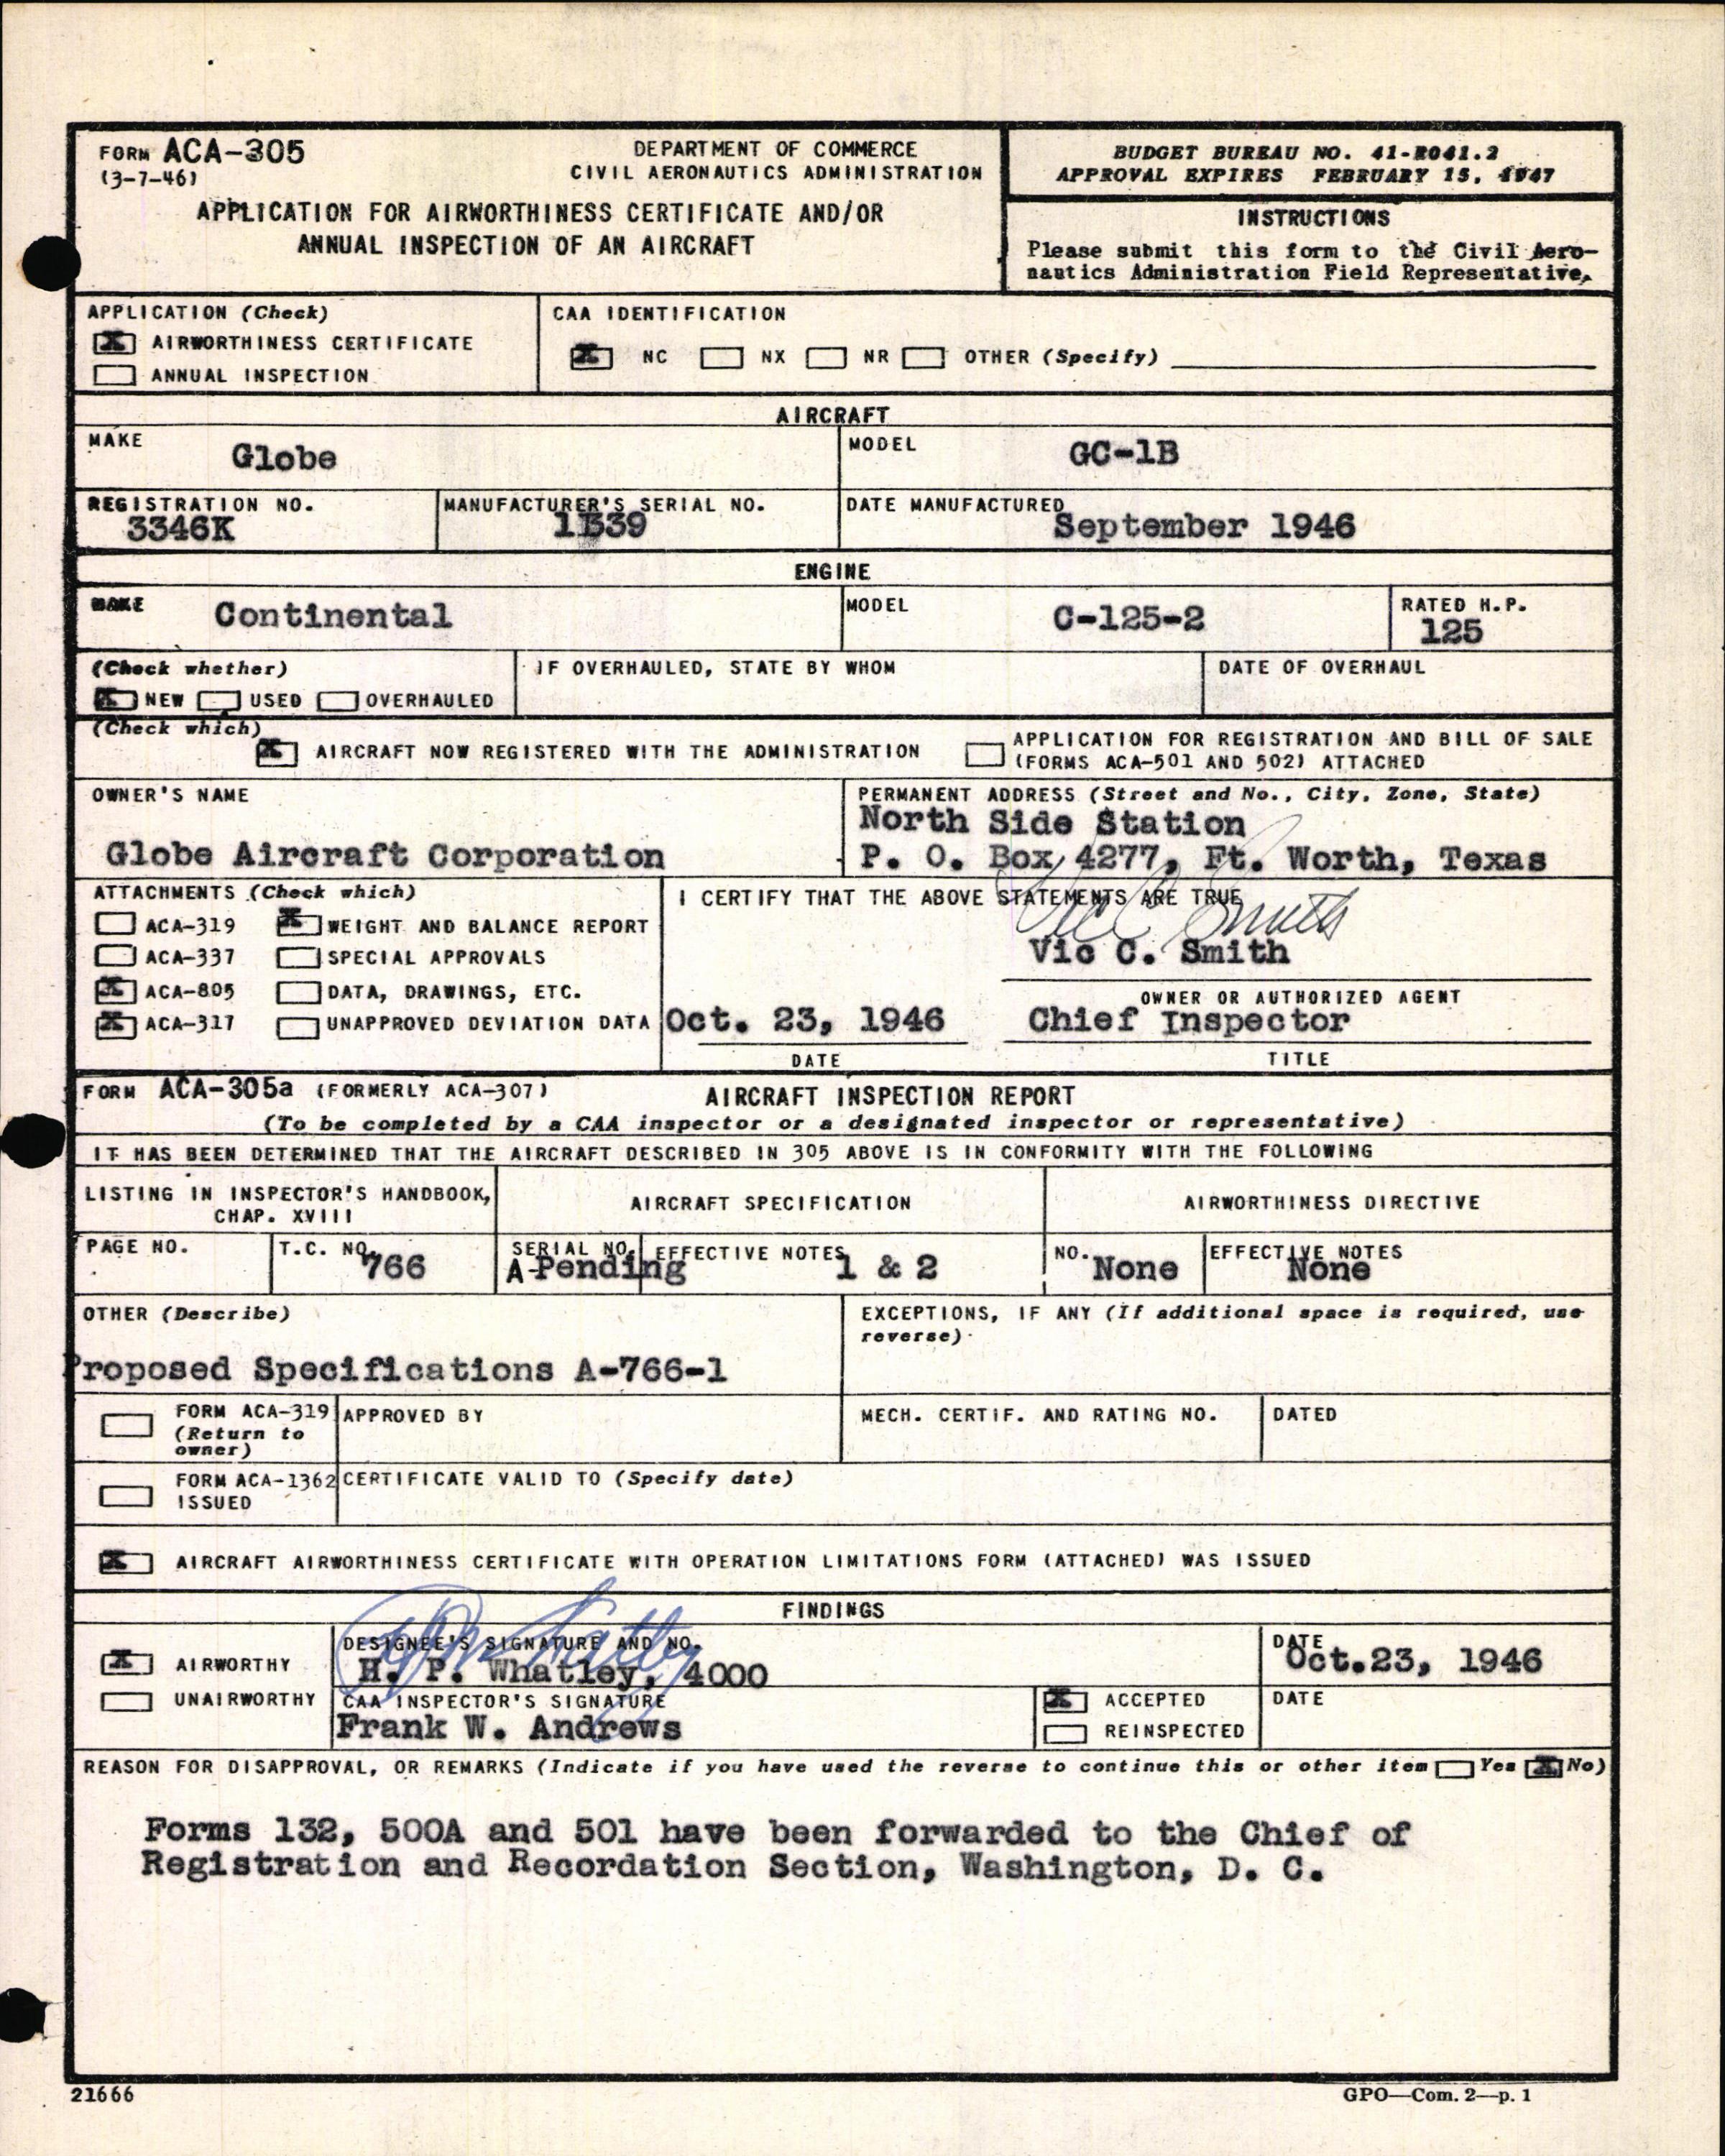 FORM ACA-305
(3-7-46)
DEPARTMENT OF COMMERCE
CIVIL AERONAUTICS ADMINISTRATION
APPLICATION FOR AIRWORTHINESS CERTIFICATE AND/OR
ANNUAL INSPECTION OF AN AIRCRAFT
BUDGET BUREAU NO. 41-R041.2
APPROVAL EXPIRES FEBRUARY 15, 1947
INSTRUCTIONS
Please submit this form to the Civil Aero-
nautics Administration Field Representative.
APPLICATION (Check)
X AIRWORTHINESS CERTIFICATE
ANNUAL INSPECTION
CAA IDENTIFICATION
X NC NX NR OTHER (Specify)
AIRCRAFT
MAKE Globe
MODEL GC-1B
REGISTRATION NO. 3346K
MANUFACTURER'S SERIAL NO. 1B39
DATE MANUFACTURED September 1946
ENGINE
MAKE Continental
MODEL C-125-2
RATED H.P. 125
(Check whether)
X NEW USED OVERHAULED
IF OVERHAULED, STATE BY WHOM
DATE OF OVERHAUL
(Check which)
X AIRCRAFT NOW REGISTERED WITH THE ADMINISTRATION
APPLICATION FOR REGISTRATION AND BILL OF SALE
(FORMS ACA-501 AND 502) ATTACHED
OWNER'S NAME
Globe Aircraft Corporation
PERMANENT ADDRESS (Street and No., City, Zone, State)
North Side Station
P. O. Box 4277, Ft. Worth, Texas
ATTACHMENTS (Check which)
ACA-319 X WEIGHT AND BALANCE REPORT
ACA-337 SPECIAL APPROVALS
X ACA-805 DATA, DRAWINGS, ETC.
X ACA-317 UNAPPROVED DEVIATION DATA
I CERTIFY THAT THE ABOVE STATEMENTS ARE TRUE
Vic C. Smith
Vic C. Smith
OWNER OR AUTHORIZED AGENT
Oct. 23, 1946 Chief Inspector
DATE TITLE
FORM ACA-305a (FORMERLY ACA-307) AIRCRAFT INSPECTION REPORT
(To be completed by a CAA inspector or a designated inspector or representative)
IT HAS BEEN DETERMINED THAT THE AIRCRAFT DESCRIBED IN 305 ABOVE IS IN CONFORMITY WITH THE FOLLOWING
LISTING IN INSPECTOR'S HANDBOOK,
CHAP. XVIII
AIRCRAFT SPECIFICATION
AIRWORTHINESS DIRECTIVE
PAGE NO.
T.C. NO. 766
SERIAL NO. A-Pending
EFFECTIVE NOTES 1 & 2
NO. None
EFFECTIVE NOTES None
OTHER (Describe)
Proposed Specifications A-766-1
EXCEPTIONS, IF ANY (If additional space is required, use
reverse)
FORM ACA-319
(Return to
owner)
APPROVED BY
MECH. CERTIF. AND RATING NO.
DATED
FORM ACA-1362
ISSUED
CERTIFICATE VALID TO (Specify date)
X AIRCRAFT AIRWORTHINESS CERTIFICATE WITH OPERATION LIMITATIONS FORM (ATTACHED) WAS ISSUED
FINDINGS
X AIRWORTHY
UNAIRWORTHY
DESIGNEE'S SIGNATURE AND NO.
H. P. Whatley, 4000
DATE
Oct.23, 1946
CAA INSPECTOR'S SIGNATURE
Frank W. Andrews
X ACCEPTED
REINSPECTED
DATE
REASON FOR DISAPPROVAL, OR REMARKS (Indicate if you have used the reverse to continue this or other item Yes X No)
Forms 132, 500A and 501 have been forwarded to the Chief of
Registration and Recordation Section, Washington, D. C.
21666
GPO—Com. 2—p. 1